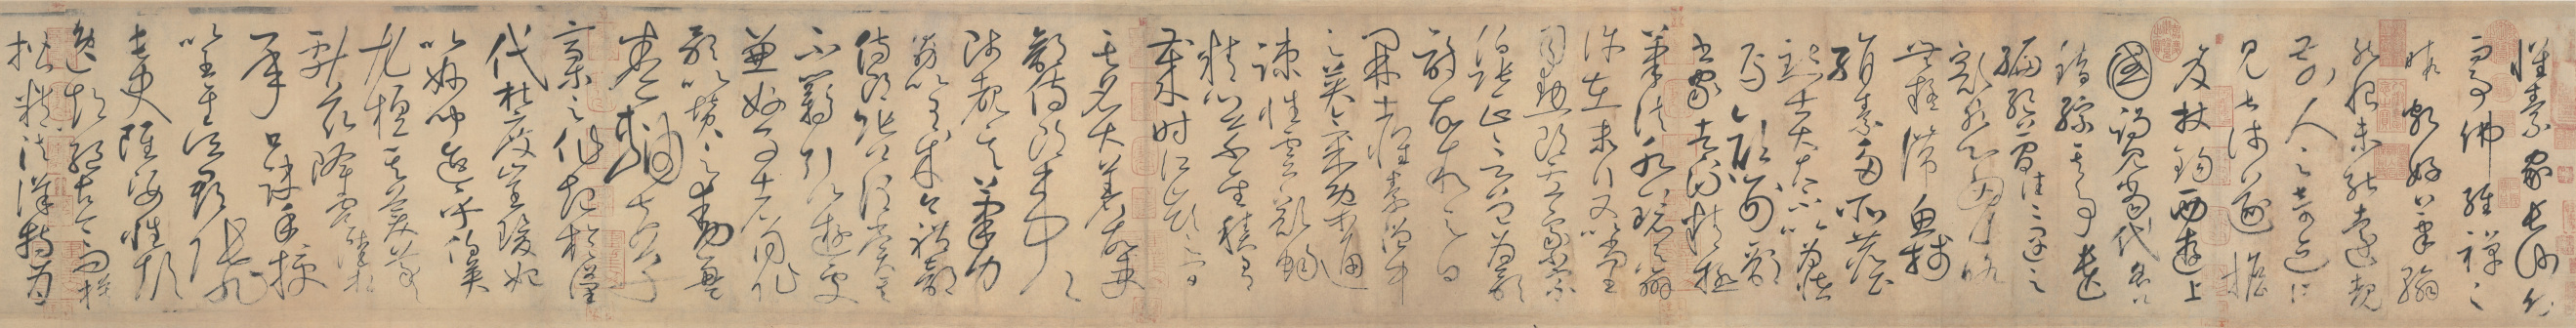 懷素家長沙幼
而事佛經禪之
暇頗好筆翰
然恨未能遠覩
前人之奇迹所
見甚淺遂擔
笈杖錫西遊上
國謁見當代名公
錯綜其事遺
編絶簡往往遇之
豁然心胸略
無疑滯魚牋
絹素多所塵點
士大夫不以為怪
焉顔刑部
書家者流精極
筆法水鏡之辨
許在末行又以尚書
司勛郎盧象小宗
伯張正言曾為歌
詩故叙之曰
開士懷素僧中
之英氣概通
疎性靈豁暢
精心草聖積有
歲時江嶺之間
其名大著故吏
部侍郎韋公
陟覩其筆力
勗以有成今禮部
侍郎張公謂賞其
不羈引以遊處
兼好事者同作
歌以贊之動盈
卷軸夫草
稿之作起於漢
代杜度崔瑗始
以妙聞迨乎伯英
尤擅其美羲
獻茲降虞陸相
承口訣手授
以至於吳郡張旭
長史雖姿性顛
逸超絶古今而模
楷精法詳特為